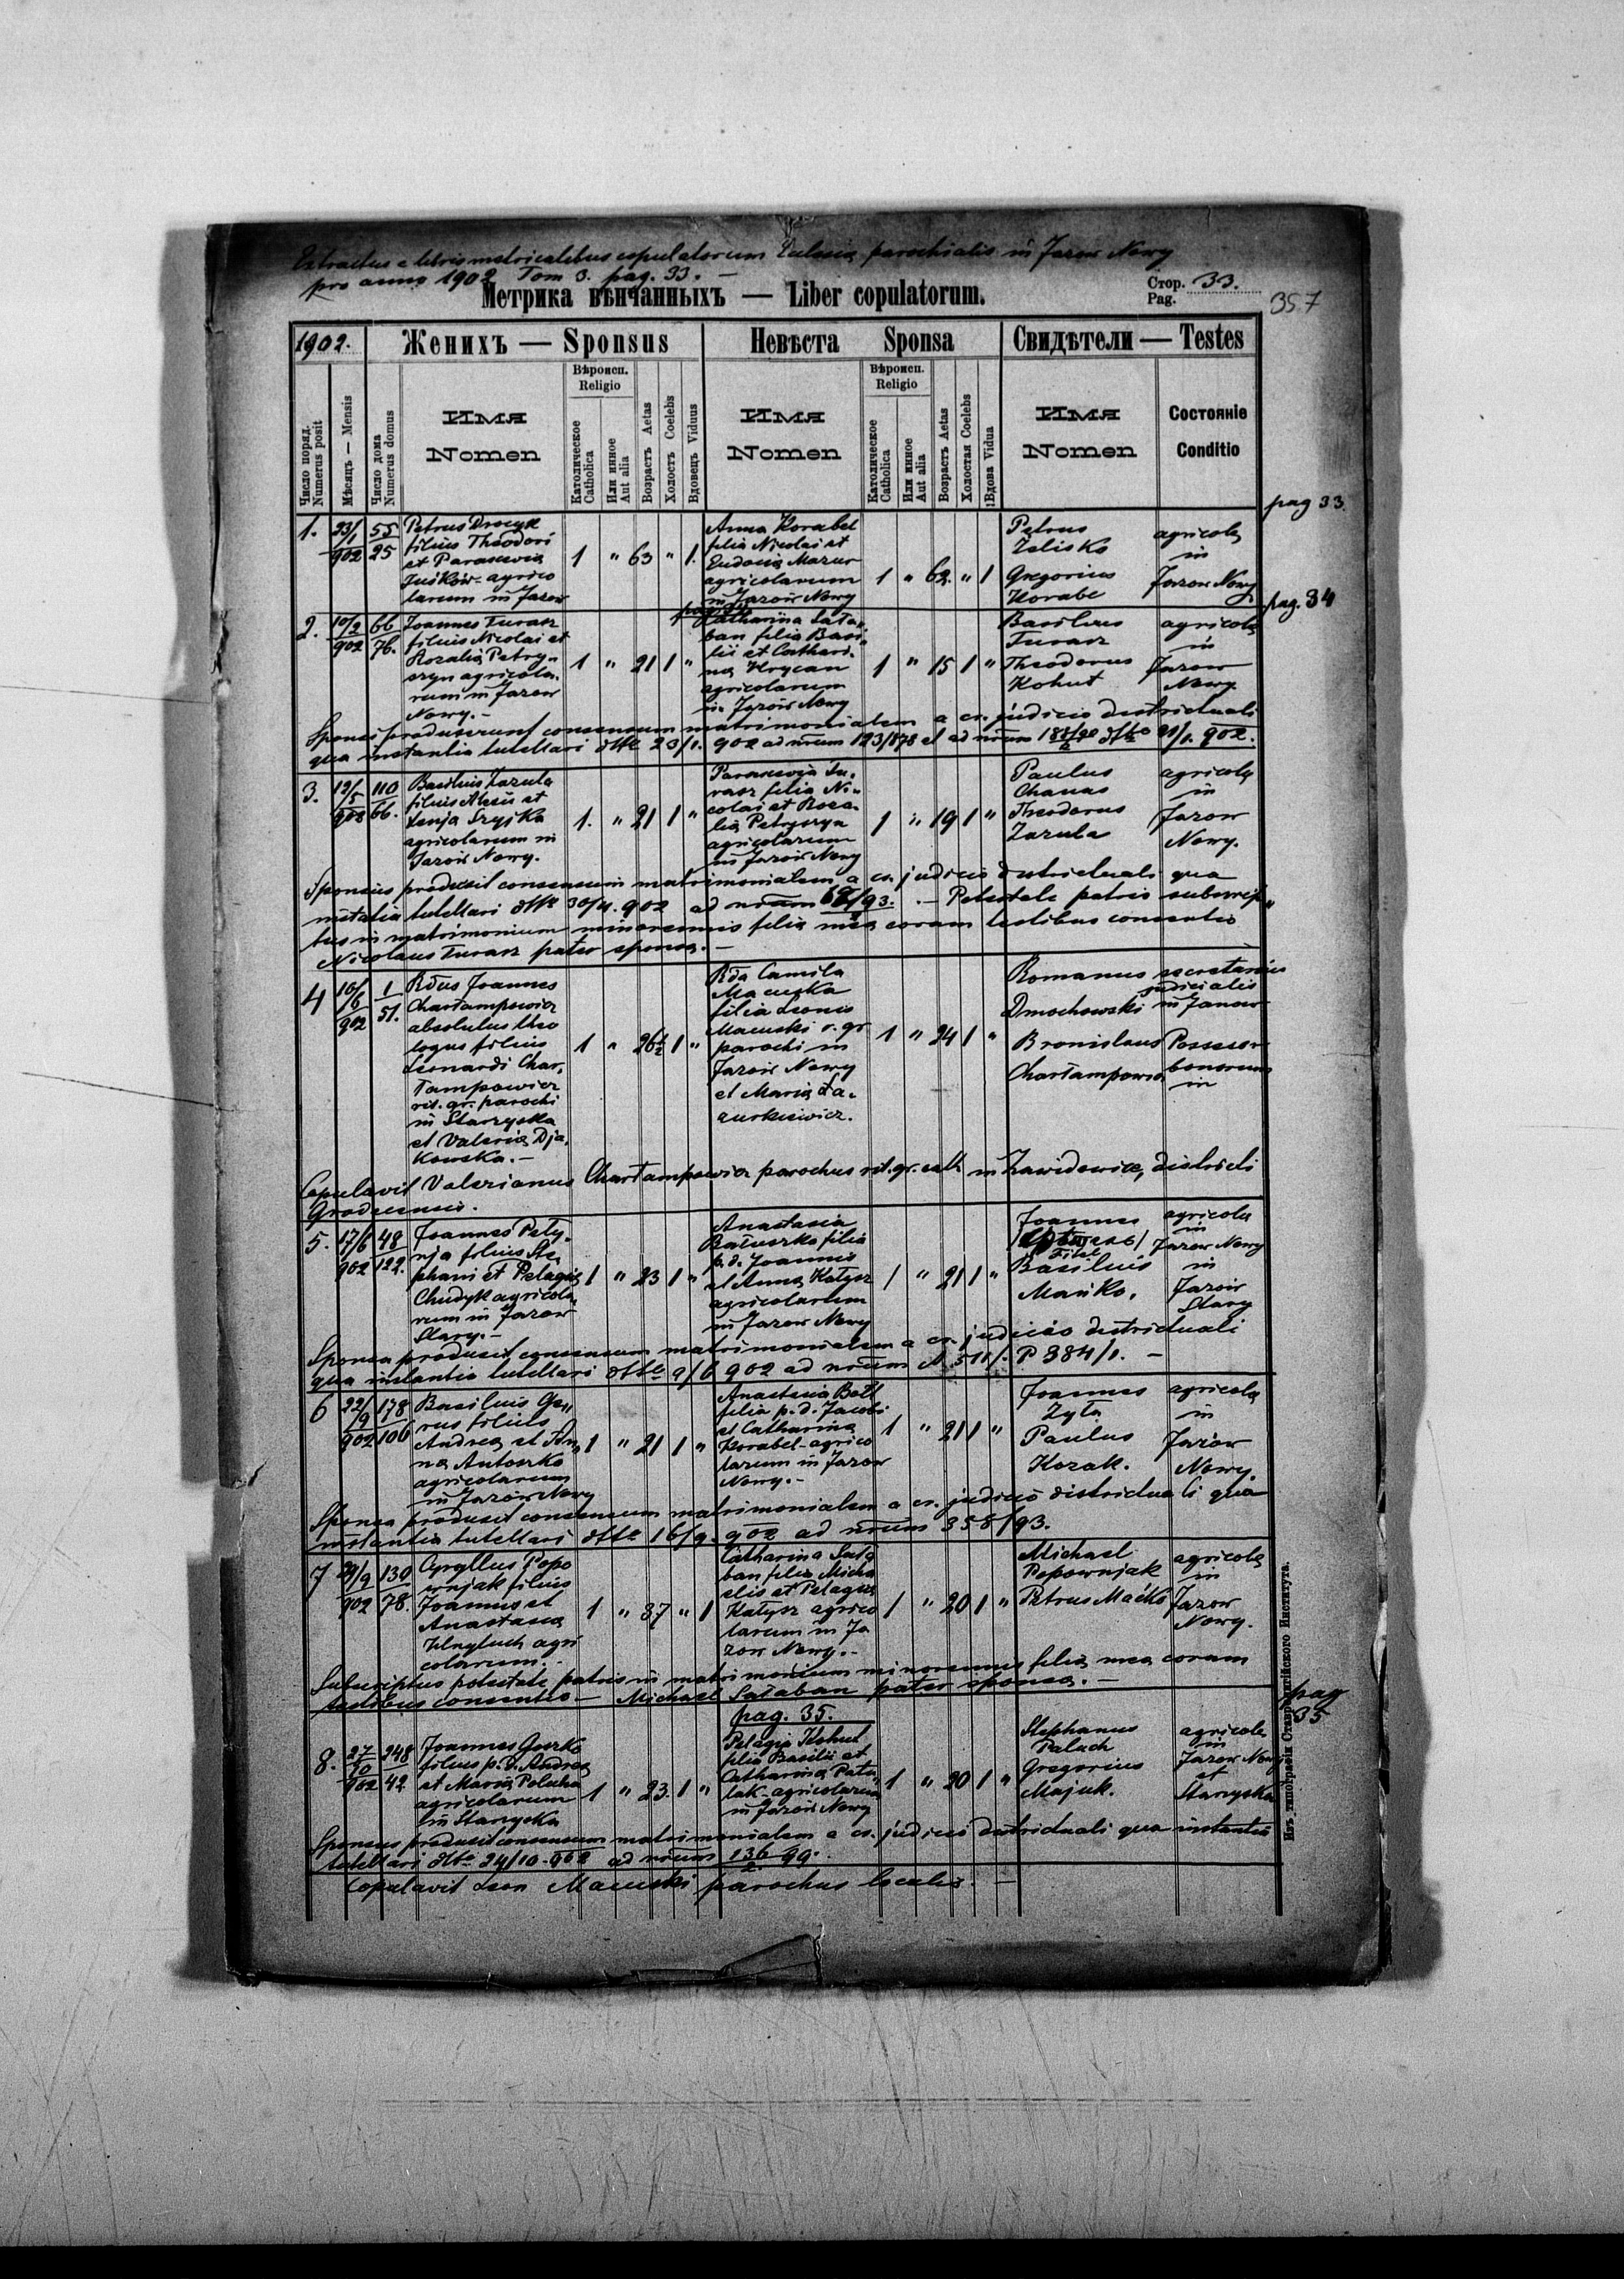 Extractus e libris matricalibus copulatorum Ecclesia parochialis in Jazow Nowy
pro anno 1902 Tom 3. pag. 33. —
Метрика вѣнчанныхъ — Liber copulatorum.
Стор. 33.
Pag.
357
1902.
Женихъ — Sponsus
Невѣста Sponsa
Свидѣтели — Testes
Число поряд.
Numerus posit
Мѣсяцъ — Mensis
Число дома
Numerus domus
Имя
Nomen
Вѣроисп.
Religio
Католическое
Catholica
Или инное
Aut alia
Возрастъ Aetas
Холостъ Coelebs
Вдовецъ Viduus
Имя
Nomen
Вѣроисп.
Religio
Католическое
Catholica
Или инное
Aut alia
Возрастъ Aetas
Холостая Coelebs
Вдова Vidua
Имя
Nomen
Состояніе
Conditio
pag 33.
1. 23/1 902 55 25
Petrus Drozyk
filius Theodori
et Parascevia
Juśków agrico
larum in Jazow
1 " 63 " 1.
Anna Korabel
filia Nicolai et
Eudocia Mazur
agricolarum
in Jazow Nowy
1 " 62 " 1
Petrus
Zelisko
Gregorius
Korabe
agricola
in
Jazow Nowy
pag. 34
2. 10/2 902 66 76.
Joannes Turasz
filius Nicolai et
Rozalia Petry„
szyn agricola„
rum in Jazow
Nowy.-
1 " 21 1 "
Catharina Sała„
ban filia Basi„
lii et Cathari„
na Hrycan
agricolarum
in Jazow Nowy
1 " 15 1 "
Basilius
Turasz
Theodorus
Kohut
agricola
in
Jazow
Nowy.
Sponsi produxerunt consensum matrimonialem a cs. judicio districtuali
qua instantia tutellari dtto 23/1. 902 ad nrum 123/178 et ad nrum dtto 21/1. 902.
3. 12/5 902 110 66.
Basilius Zazula
filius Alexii et
Xenja Szyjka
agricolarum in
Jazow Nowy.
1. " 21 1 "
Parascevia Tu„
rasz filia Ni„
colai et Roza„
lia Petryszyn
agricolarum
in Jazow Nowy
1 " 19 1 "
Paulus
Chanas
Theodorus
Zazula
agricola
in
Jazow
Nowy.
Sponsus produxit consensum matrimonialem a cs. judicio districtuali qua
instantia tutellari dtto 30/4. 902 ad nrum /93. — Potestate patris subscrip„
tus in matrimonium minorennis filia mea coram testibus consentio
Nicolaus Turasz pater sponsa. —
4 10/6 902 1 51.
Rdus Joannes
Chartampowicz
absolutus theo
logus filius
Leonardi Char„
tampowicz
rit. gr. parochi
in Starzyska
et Valeria Dja„
kowska.—
1 " 26½ 1 "
Rda Camila
Macuska
filia Leonis
Macuski r. gr
parochi in
Jazow Nowy
et Maria Ła„
zurkiewicz.
1 " 24 1 "
Romanus
Dmochowski
Bronislaus
Chartampowicz
secretarius
judicialis
in Janow
Possessor
bonorum
in
Copulavit Valerianus Chartampowicz parochus rit. gr. cath in Zawidowice, districti
Grodecensis.
5. 17/6 902 48 122.
Joannes Pety„
nja filius Ste„
phani et Pelagia
Chudyk agricola„
rum in Jazow
Stary.-
1 " 23 1 "
Anastasia
Batuszko filia
p.d. Joannis
et Anna Kotysz
agricolarum
in Jazow Nowy
1 " 21 1 "
Joannes
Basilius
Mańko.
agricola
in
Jazow Nowy
in
Jazow
Stary
Sponsa produxit consensum matrimonialem a cs. judicio districtuali
qua instantia tutellari dtto 9/6 902 ad nrum P 384/1. —
6 22/9 902 178 106
Basilius Ge„
rus filius
Andrea et An„
na Antoszko
agricolarum
in Jazow Nowy
1 " 21 1 "
Anastasia Batt
filia p.d. Jacobi
et Catharina
Korabel agrico
larum in Jazow
Nowy.-
1 " 21 1 "
Joannes
Zyła
Paulus
Kozak.
agricola
in
Jazow
Nowy.
Sponsa produxit consensum matrimonialem a cs. judicio districtuali qua
instantia tutellari dtto 16/9. 902 ad nrum 358/93.
7 29/9 902 130 78.
Cyryllus Popo
wnjak filius
Joannis et
Anastasia
Hnyluch agri
colarum.-
1 " 37 " 1
Catharina Sała
ban filia Micha
elis et Pelagia
Kotysz agrico
larum in Ja
zow Nowy.-
1 " 20 1 "
Michael
Popownjak
Petrus Maćko
agricola
in
Jazow
Nowy.
Subscriptus potestate patris in matrimonium minorennis filia mea coram
testibus consentio — Michael Sałaban pater sponsa. —
pag. 35.
pag
35
8. 27/10 902 248 42
Joannes Guzko
filius p.d. Andrea
et Maria Polucha
agricolarum
in Starzyska
1 " 23. 1 "
Pelagia Kohut
filia Basilii et
Catharina Patu„
lak agricolarum
in Jazow Nowy
1 " 20 1 "
Stephanus
Paluch
Gregorius
Majuk.
agricola
in
Jazow Nowy
et
Starzyska
Sponsus produxit consensum matrimonialem a cs. judicio districtuali qua instantia
tutellari dtto 24/10. 902 ad nrum 136/2 99.
Copulavit Leon Macuski parochus localis. —
Изъ типографіи Ставропигійского Института.